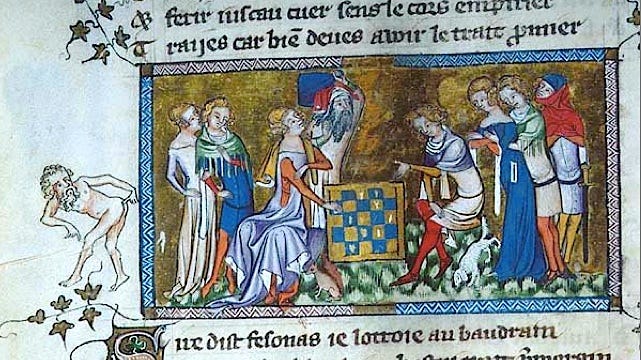 & ferir iuscau cuer sens le cors empirier
Traijes car biē deues avoir le trait p̄mier
Sire dist fesonas ie lottoie au baudrain